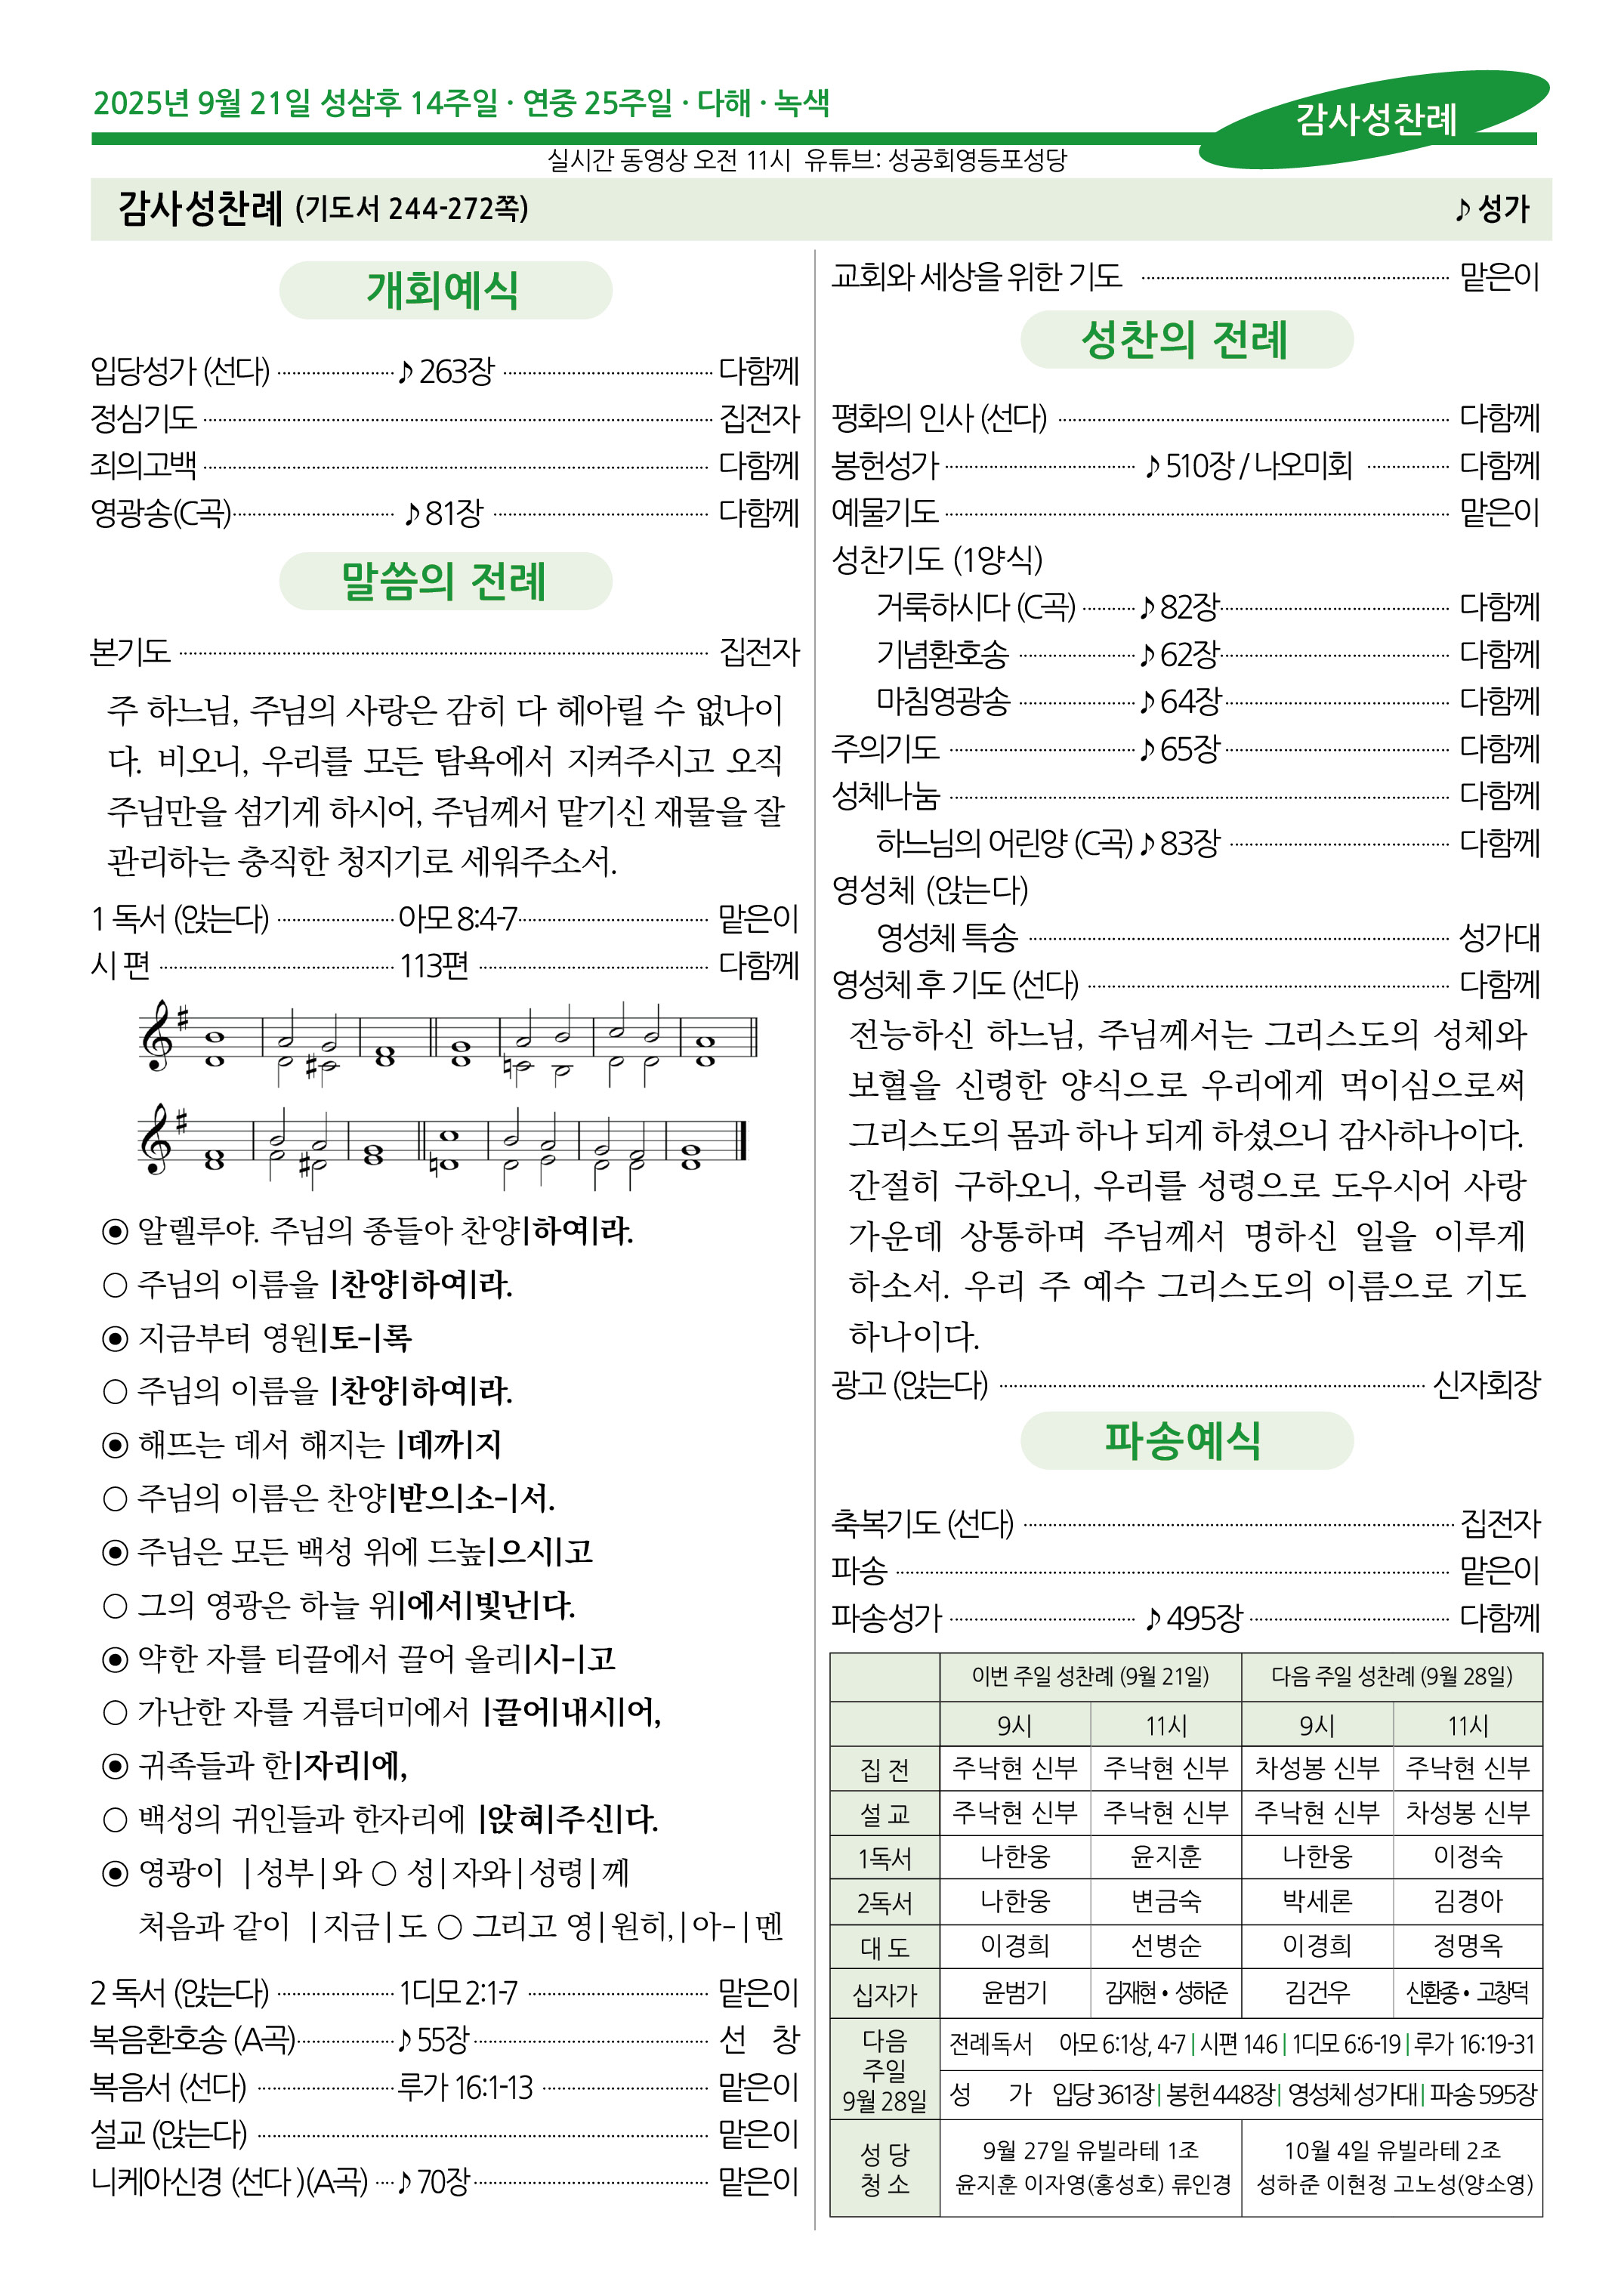 2025년 9월 21일 성삼후 14주일 · 연중 25주일 · 다해 · 녹색
감사성찬례
실시간 동영상 오전 11시 유튜브: 성공회영등포성당
감사성찬례 (기도서 244-272쪽) ♪ 성가
개회예식
입당성가 (선다) ♪ 263장 다함께
정심기도 집전자
죄의고백 다함께
영광송(C곡) ♪ 81장 다함께
말씀의 전례
본기도 집전자
주 하느님, 주님의 사랑은 감히 다 헤아릴 수 없나이
다. 비오니, 우리를 모든 탐욕에서 지켜주시고 오직
주님만을 섬기게 하시어, 주님께서 맡기신 재물을 잘
관리하는 충직한 청지기로 세워주소서.
1 독서 (앉는다) 아모 8:4-7 맡은이
시 편 113편 다함께
◉ 알렐루야. 주님의 종들아 찬양|하여|라.
○ 주님의 이름을 |찬양|하여|라.
◉ 지금부터 영원|토-|록
○ 주님의 이름을 |찬양|하여|라.
◉ 해뜨는 데서 해지는 |데까|지
○ 주님의 이름은 찬양|받으|소-|서.
◉ 주님은 모든 백성 위에 드높|으시|고
○ 그의 영광은 하늘 위|에서|빛난|다.
◉ 약한 자를 티끌에서 끌어 올리|시-|고
○ 가난한 자를 거름더미에서 |끌어|내시|어,
◉ 귀족들과 한|자리|에,
○ 백성의 귀인들과 한자리에 |앉혀|주신|다.
◉ 영광이 |성부|와 ○ 성|자와|성령|께
처음과 같이 |지금|도 ○ 그리고 영|원히,|아-|멘
2 독서 (앉는다) 1디모 2:1-7 맡은이
복음환호송 (A곡) ♪ 55장 선 창
복음서 (선다) 루가 16:1-13 맡은이
설교 (앉는다) 맡은이
니케아신경 (선다 )(A곡) ♪ 70장 맡은이
교회와 세상을 위한 기도 맡은이
성찬의 전례
평화의 인사 (선다) 다함께
봉헌성가 ♪ 510장 / 나오미회 다함께
예물기도 맡은이
성찬기도 (1양식)
거룩하시다 (C곡) ♪ 82장 다함께
기념환호송 ♪ 62장 다함께
마침영광송 ♪ 64장 다함께
주의기도 ♪ 65장 다함께
성체나눔 다함께
하느님의 어린양 (C곡) ♪ 83장 다함께
영성체 (앉는다)
영성체 특송 성가대
영성체 후 기도 (선다) 다함께
전능하신 하느님, 주님께서는 그리스도의 성체와
보혈을 신령한 양식으로 우리에게 먹이심으로써
그리스도의 몸과 하나 되게 하셨으니 감사하나이다.
간절히 구하오니, 우리를 성령으로 도우시어 사랑
가운데 상통하며 주님께서 명하신 일을 이루게
하소서. 우리 주 예수 그리스도의 이름으로 기도
하나이다.
광고 (앉는다) 신자회장
파송예식
축복기도 (선다) 집전자
파송 맡은이
파송성가 ♪ 495장 다함께
이번 주일 성찬례 (9월 21일) 다음 주일 성찬례 (9월 28일)
9시 11시 9시 11시
집 전 주낙현 신부 주낙현 신부 차성봉 신부 주낙현 신부
설 교 주낙현 신부 주낙현 신부 주낙현 신부 차성봉 신부
1독서 나한웅 윤지훈 나한웅 이정숙
2독서 나한웅 변금숙 박세론 김경아
대 도 이경희 선병순 이경희 정명옥
십자가 윤범기 김재현 • 성하준 김건우 신환종 • 고창덕
다음
주일
9월 28일
전례독서 아모 6:1상, 4-7 | 시편 146 | 1디모 6:6-19 | 루가 16:19-31
성 가 입당 361장 | 봉헌 448장 | 영성체 성가대 | 파송 595장
성 당
청 소
9월 27일 유빌라테 1조
윤지훈 이자영(홍성호) 류인경
10월 4일 유빌라테 2조
성하준 이현정 고노성(양소영)